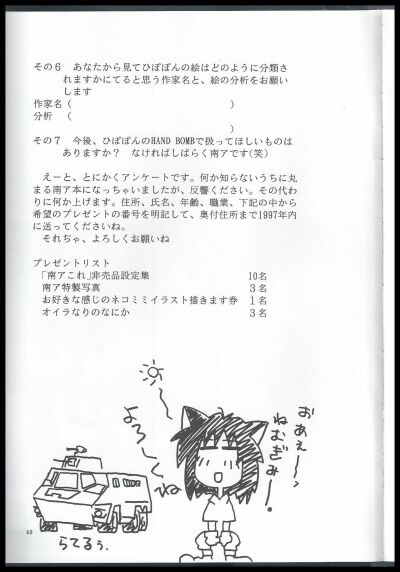 その6　あなたから見てひぽぽんの絵はどのように分類さ
れますかにてると思う作家名と、絵の分析をお願い
します
作家名（　　　　　　　　　　　　　　　）
分析　（
）
その7　今後、ひぽぽんのHAND BOMBで扱ってほしいものは
ありますか？　なければしばらく南アです(笑)
えーと、とにかくアンケートです。何か知らないうちに丸
まる南ア本になっちゃいましたが、反響ください。その代わ
りに何か上げます。住所、氏名、年齢、職業、下記の中から
希望のプレゼントの番号を明記して、奥付住所まで1997年内
に送ってくださいね。
それぢゃ、よろしくお願いね
プレゼントリスト
「南アこれ」非売品設定集　　　10名
南ア特製写真　　　3名
お好きな感じのネコミミイラスト描きます券　1名
オイラなりのなにか　　　3名
おあえ〜、
ねむぎみー。
よろしくね
らてるぅ.
49